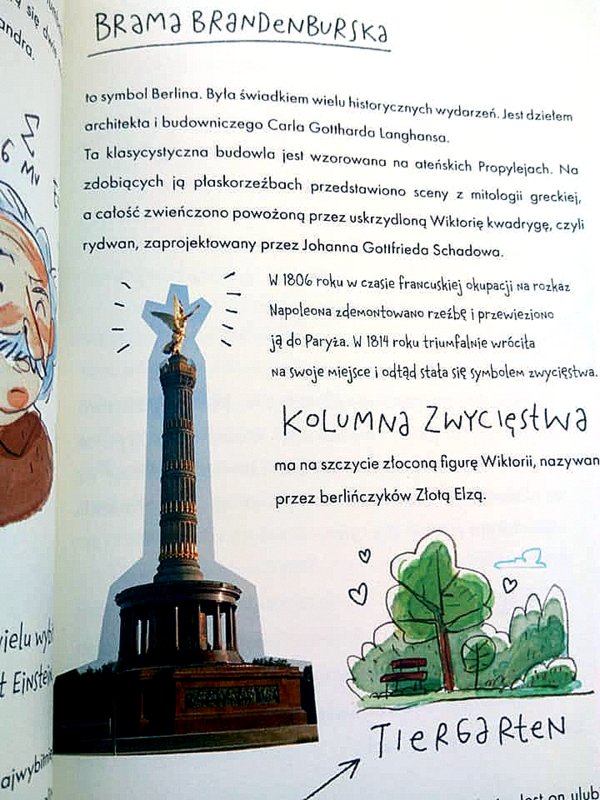 się dwa
andra.
6
Σ
Mv
t Einstein
BRAMA BRANDENBURSKA
to symbol Berlina. Była świadkiem wielu historycznych wydarzeń. Jest dziełem
architekta i budowniczego Carla Gottharda Langhansa.
Ta klasycystyczna budowla jest wzorowana na ateńskich Propylejach. Na
zdobiących ją płaskorzeźbach przedstawiono sceny z mitologii greckiej,
a całość zwieńczono powożoną przez uskrzydloną Wiktorię kwadrygę, czyli
rydwan, zaprojektowany przez Johanna Gottfrieda Schadowa.
W 1806 roku w czasie francuskiej okupacji na rozkaz
Napoleona zdemontowano rzeźbę i przewieziono
ją do Paryża. W 1814 roku triumfalnie wróciła
na swoje miejsce i odtąd stała się symbolem zwycięstwa.
KOLUMNA ZWYCIĘSTWA
ma na szczycie złoconą figurę Wiktorii, nazywan
przez berlińczyków Złotą Elzą.
TIERGARTEN
Jest on ulub